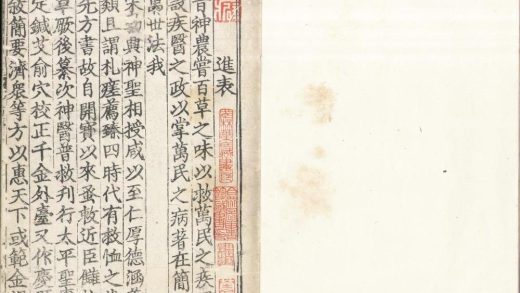 進表
昔神農嘗百草之味以救萬民之疾
設疾醫之政以掌萬民之病著在簡
萬世法我
宋勃興神聖相授咸以至仁厚德涵
類且謂札瘥薦臻四時代有救恤之
先方書故自開寶以來蚤敕近臣讎
草厥後纂次神醫普救刊行太平聖
定鍼艾俞穴校正千金外臺又作慶
救簡要濟衆等方以惠天下或範金